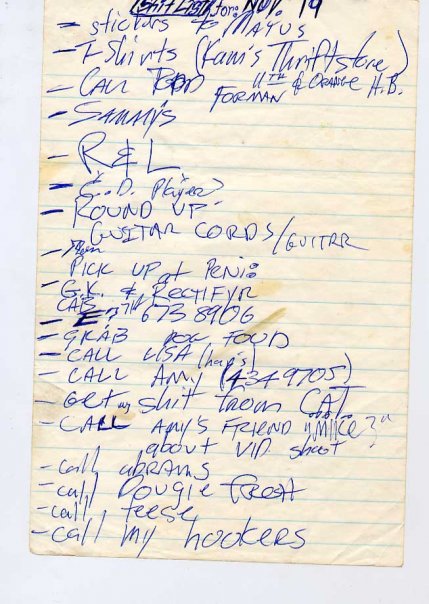 (Shit List) for: Nov. 19
- stickers to MATUS
- T-Shirts (Pam's Thriftstore)
11TH & ORANGE H.B.
- CALL TODD FORMAN
- Sammy's
- R & L
- C.D. Player?
- ROUND UP
GUITAR CORDS/GUITAR
- Then
PICK UP at PENI:
- G.K. & RECTIFYR
CAB
- 673 8906
- GRAB DOG FOOD
- CALL LISA (hap's)
- CALL AMY (434 9705)
- Get my shit from CAT
- CALL AMY'S FRIEND "MIKE?"
about VID shoot
- call abrams
- call Dougie Fresh
- call feese
- call my hookers